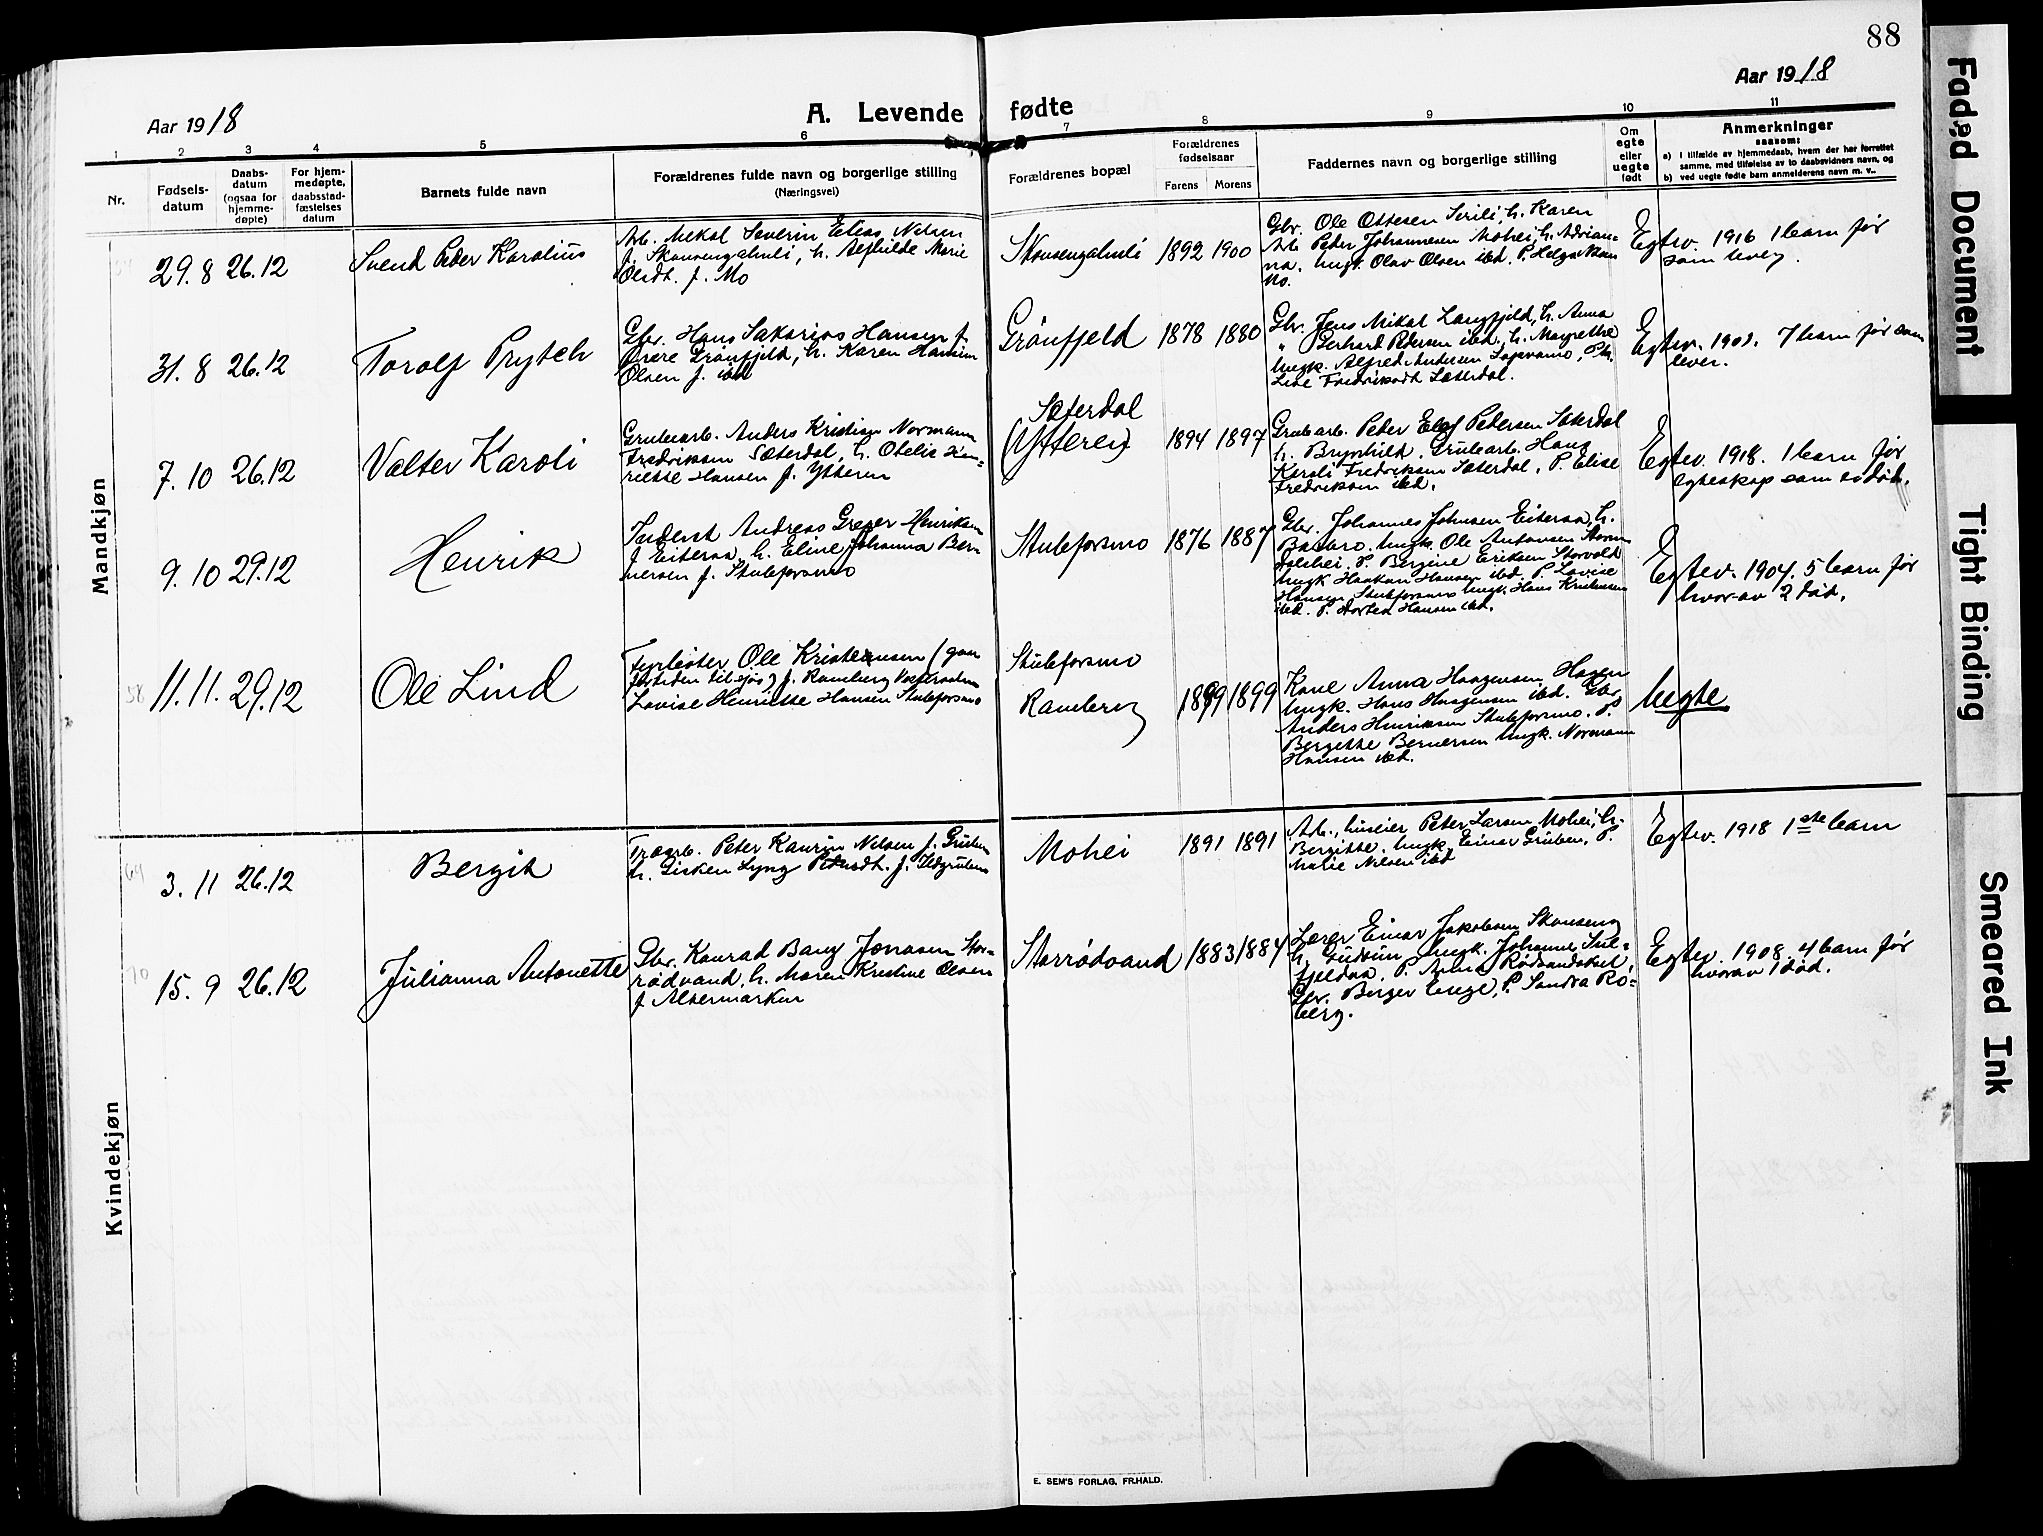 88
Aar 1918
A. Levende fødte
Aar 1918
1 2 3 4 5 6 7 8 9 10 11
Nr.
Fødsels-
datum
Daabs-
datum
(ogsaa for
hjemme-
døpte)
For hjem-
medøpte,
daabsstad-
fæstelses
datum
Barnets fulde navn
Forældrenes fulde navn og borgerlige stilling
(Næringsvei)
Forældrenes bopæl
Forældrenes
fødselsaar
Farens Morens
Faddernes navn og borgerlige stilling
Om
egte
eller
uegte
født
Anmerkninger
saasom:
a) I tilfælde av hjemmedaab, hvem der har forrettet
samme, med tilføielse av to daabsvidners navn, og
b) ved uegte fødte barn anmelderens navn m. v..
Mandkjøn
29.8 26.12
Svend Peder Karolius
Arb. Mikal Severin Elias Nilsen
f. Skonsengalmli, h. Alfhilde Marie
Olsdt. f. Mo
Skonsengalmli
1892 1900
Gbr. Ole Ottesen Sirili, h. Karen
Arb. Peter Johannesen Mohei, h. Adrian-
na. Ungk. Olav Olsen ibd. P. Helga
Mo.
Egtev. 1916 1 barn før
som lever.
31.8 26.12
Torolf Prytch
Gbr. Hans Sakarias Hansen f.
Øvre Grönfjeld, h. Karen Hansine
Olsen f. ibd
Grönfjeld
1878 1880
Gbr. Jens Mikal Langfjeld, h. Anna
" Gerhard Pedersen ibd., h. Margrethe
Ungk. Alfred Andersen
Lise Fredriksdt Sæterdal.
Egtev. 1901. 7 barn før som
lever.
7.10 26.12
Valter Karoli
Grubearb. Anders Kristian Normann
Fredriksen Sæterdal, h. Otelie Hen-
riette Hansen f. Ytteren
Sæterdal
(Ytteren)
1894 1897
Grubearb. Peder Elof Pedersen Sæterdal
h. Brynhild. Grubearb. Hans
Karoli Fredriksen Sæterdal, P. Elise
Fredriksen ibd.
Egtev. 1918. 1 barn før
egteskap som er död.
9.10 29.12
Henrik
Andreas Greger Henriksen
f. Eiteraa, h. Eline Johanna Ber-
nersen f. Stubeforsmo
Stubeforsmo
1876 1887
Gbr. Johannes Johnsen Eiteraa, h.
Barbro. Ungk. Ole Antonsen Storm-
dalshei. P. Bergine Eriksen Storvolt
Ungk Haakon Hansen ibd. P. Lovise
Hansen Stubeforsmo Ungk. Hans Kristensen
ibd. P. Dortea Hansen ibd.
Egtev. 1904. 5 barn før
hvorav 2 död.
58
11.11. 29.12
Ole Lind
Fyrbøter Ole Kristensen (gaar
fortiden tilsjös) f. Ramberg
Lovise Henriette Hansen Stubeforsmo
Stubeforsmo
Ramberg
1899 1899
Kone Anna Haagensen Hagen
Ungk. Hans Haagensen ibd. Gbr.
Anders Henriksen Stubeforsmo. P.
Bergette Bernersen Ungk. Normann
Hansen ibd.
Uegte
Kvindekjøn
69
3.11 26.12
Bergit
Peter Kaurin Nilsen f. Gruben
h. Gisken Lyng Petersdt. f.
Mohei
1891 1891
Arb., huseier Peter Larsen Mohei, h.
Bergitte. Ungk. Einar Gruben, P.
Malie Nilsen ibd
Egtev. 1918 1ste barn
70
15.9 26.12
Julianna Antonette
Gbr. Konrad Bang Jonasen Stor-
rødvand, h. Maren Kristine Olsen
f. Altermarken
Storrødvand
1883 1884
Lærer Einar Jakobsen Skonseng
h. Gudrun Ungk. Johannes
P. Anna
Gbr. Birger Enge, P. Sandra Rø-
berg.
Egtev. 1908. 4 barn før
hvorav 1 död.
E. SEM'S FORLAG, FR.HALD.
Faded Document
Tight Binding
Smeared Ink